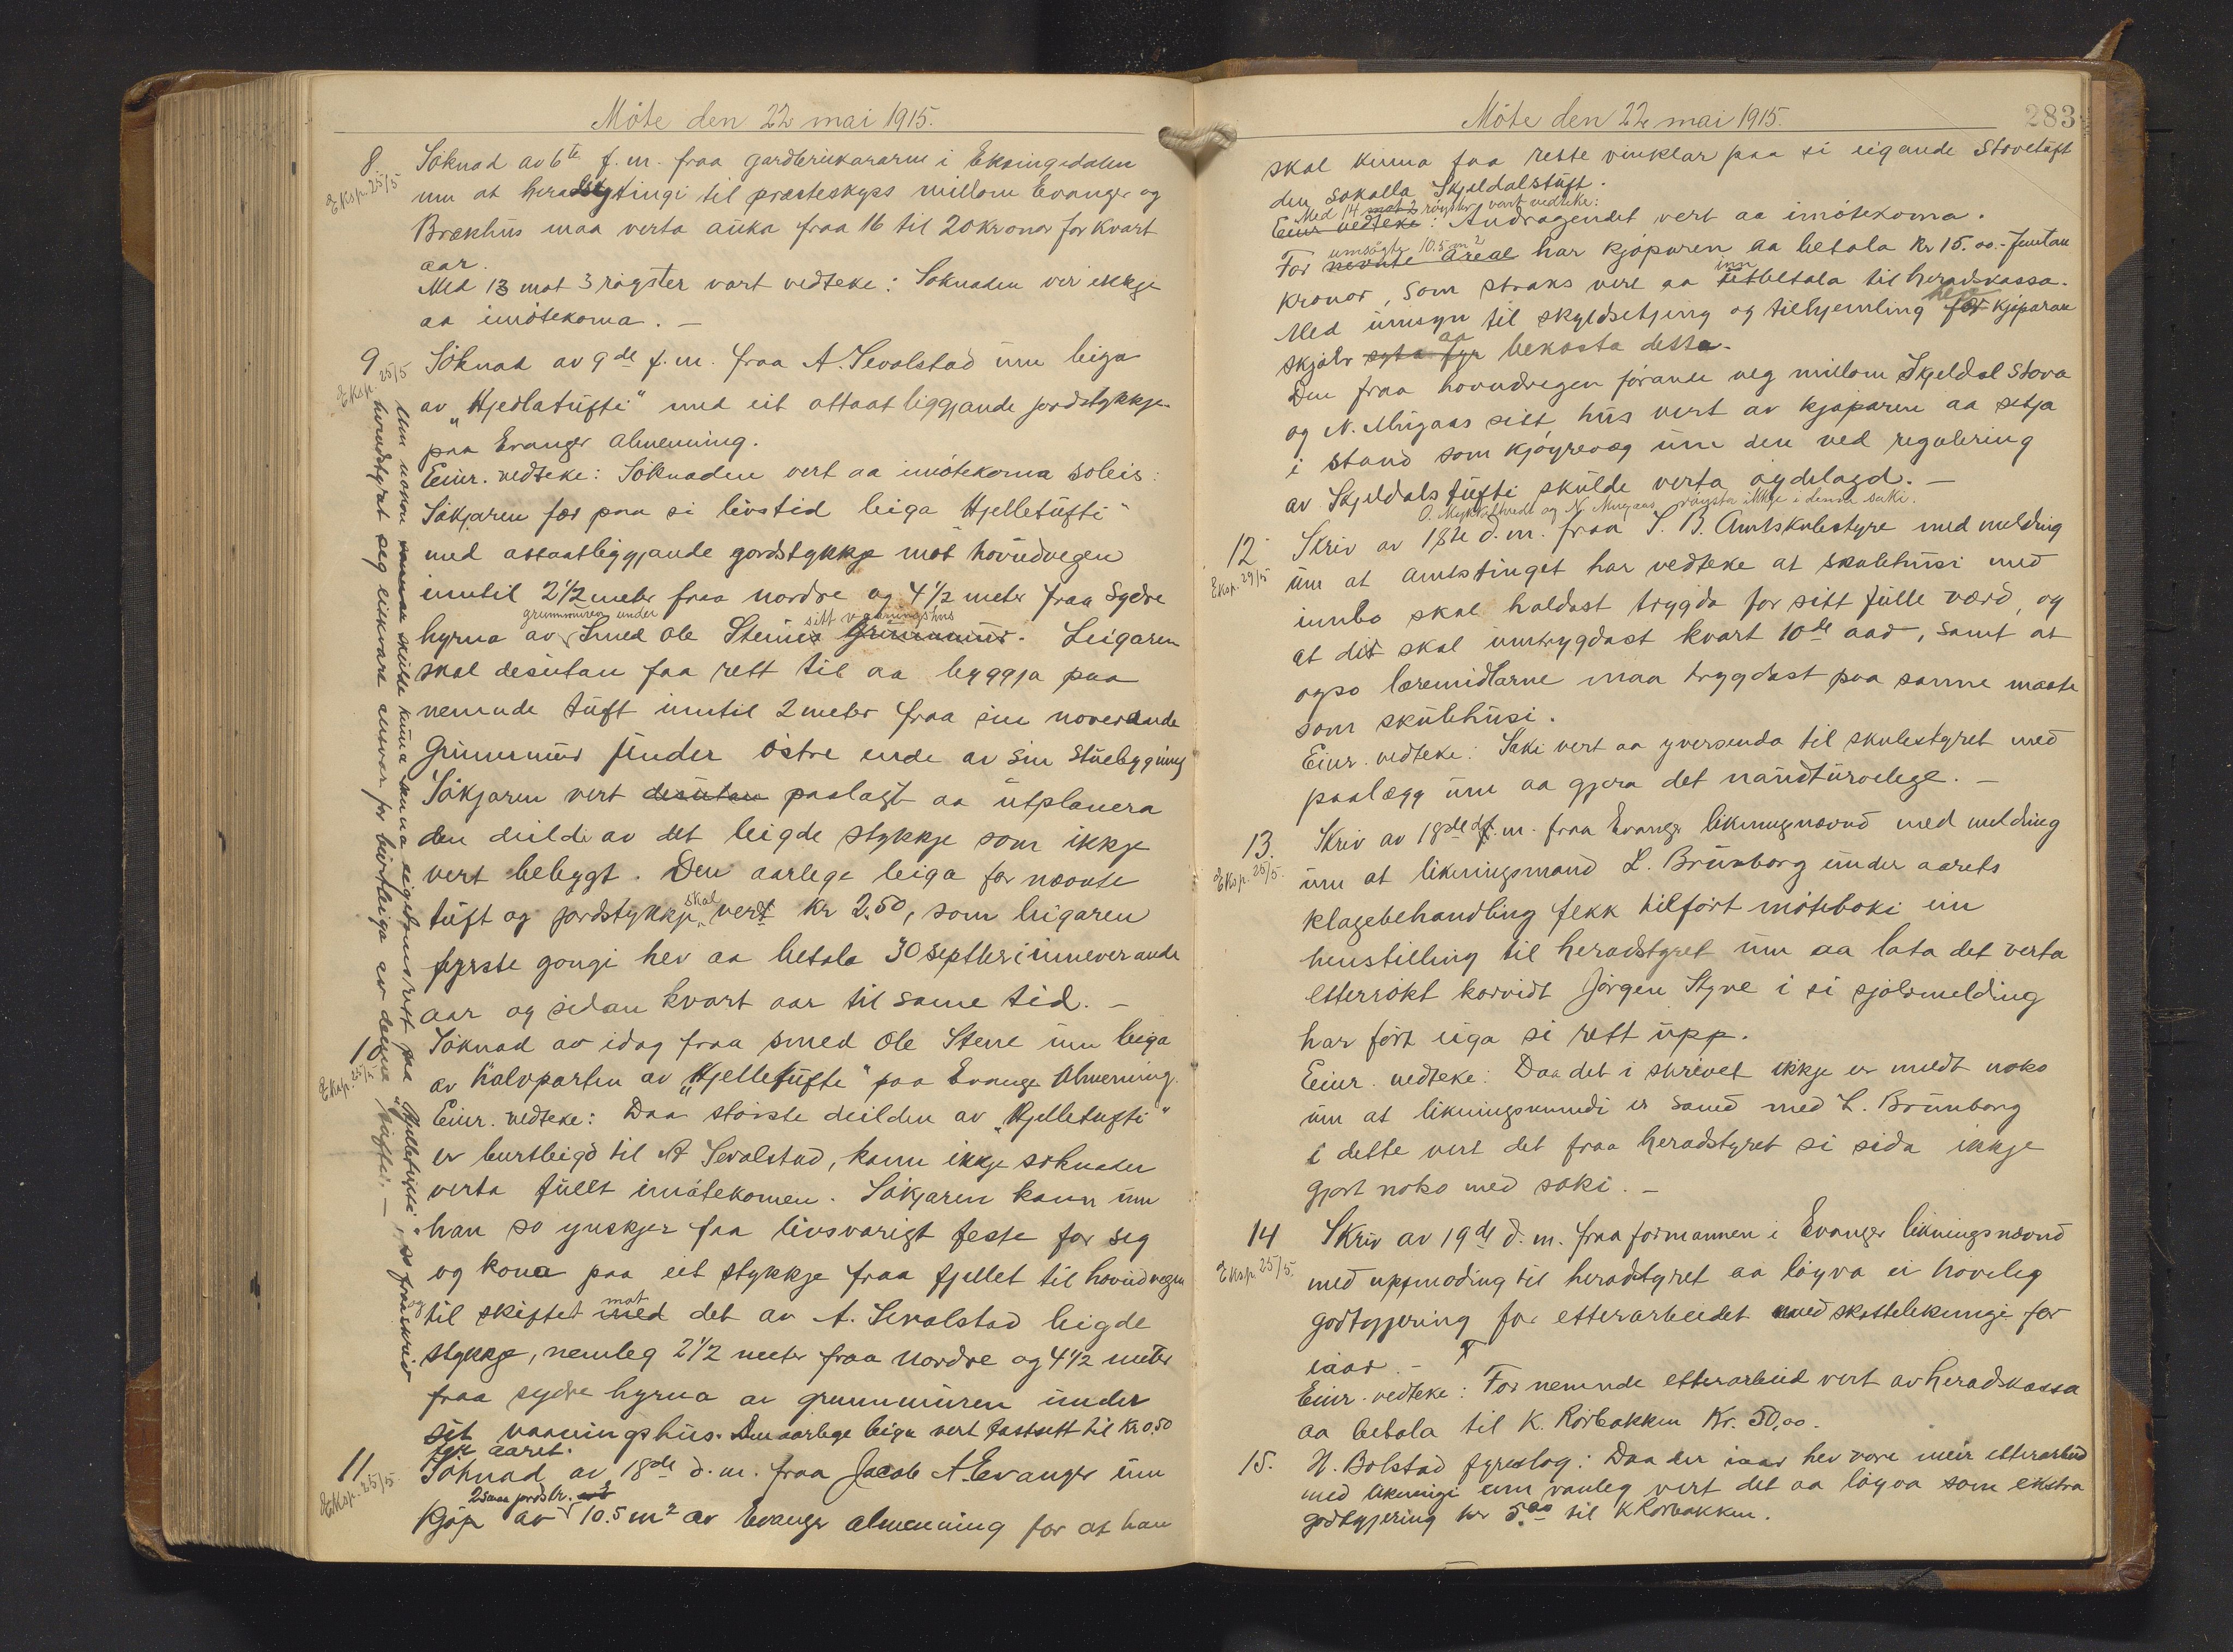 Möte den 22 mai 1915.
8. Söknad av 6te f.m. fraa gardbrukararne i Eksingedalen
Eksp. 25/5
um at heradstyingi til presteskyss millom Evanger og
Brækhus maa verta auka fraa 16 til 20 kronor for kvart
aar.
Med 13 mot 3 røyster vart vedteke: Søknaden ver ikkje
aa imøtekoma. —
9 Söknad av 9de f.m. fraa A. Sevalstad um leiga
Eksp. 25/5
av "Hjedlatufti" med eit attaat liggjande jordstykkje
paa Evanger almenning.
Einr. vedteke: Söknaden vert aa imøtekoma soleis:
Søkjaren fær paa si livstid leiga "Hjelletufti"
med attaatliggjande gordstykkje mot hovudvegen
inntil 2 1/2 meter fraa nordre og 4 1/2 meter fraa sydre
grunnmuren under sitt vaaningshus
hyrna av Smed Ole Steines Grunnmur. Leigaren
skal desutan faa rett til aa byggja paa
nemnde tuft inntil 2 meter fraa sin noverande
Grunnmur under østre ende av sin stuebygning
Søkjaren vert desutan paalagt aa utplanera
den deildi av det leigde stykkje som ikkje
vert bebygt. Den aarlege leiga for nevnte
skal
tuft og jordstykkje vert kr 2,50, som leigaren
fyrste gongi hev aa betala 30 septbr i inneverande
aar og sidan kvart aar til same tid. —
Um nokon skulde kunna eigedomsrett paa "Hjelletufti", so fraaskriv
heradstyret seg eikvart ansvar for bortleiga av denne tufti. —
10 Söknad av idag fraa smed Ole Stene um leiga
Eksp. 25/5
av halvparten av "Hjelletufte" paa Evanger Almenning.
Einr. vedteke: Daa største deilden av "Hjelletufti"
er burtleigd til A Sevalstad, kann ikkje søknaden
verta fullt imøtekomen. Søkjaren kann um
han so ynskjer faa livsvarigt feste for seg
og kona paa eit stykkje fraa fjellet til hovudvegen
og mot
til skiftet med det av A. Sevalstad leigde
stykkje, nemleg 2 1/2 meter fraa nordre og 4 1/2 meter
fraa sydre hyrna av grunnmuren under
sit vaaningshus. Den aarlege leiga vert fastsett til Kr 0,50
fyr aaret.
11. Söknad av 18de d.m. fraa Jacob A. Evanger um
Eksp. 25/5
Kjøp av 10.5 m2 av Evanger almenning for at han
Möte den 22 mai 1915.
283
skal kunna faa rette vinklar paa si eigande Stovetuft
den sokalla Skjeldalstuft.
Med 14 mot 2 røyster vart vedteke:
Einr vedteke: Andragendet vert aa imøtekoma.
umsøgte 10.5 m2
For nevnte areal har kjøparen aa betala Kr 15.00 - femtan
inn
kronor, som straks vert aa utbetala til heradskassa.
hev
Med umsyn til skyldsetjing og tilhjemling for kjøparen
aa
skjølv syta fyr bekosta dette.
Den fraa hovudvegen førande veg millom Skjeldal stova
og N. Mugaas sitt hus vert av kjøparen aa setja
i stand som kjøyreveg um den ved regulering
av Skjeldalstufti skulde verta øydelagd. —
O. Mykkeltvedt og N. Mugaas røysta ikkje i denne saki.
12 Skriv av 18de d.m. fraa S. B. Amtskulestyre med melding
Eksp. 29/5
um at amtstinget har vedteke at skulehusi med
innbo skal haldast trygda for sitt fulle værd, og
at dei skal umtrygdast kvart 10de aar, samt at
ogso læremidlarne maa trygdast paa same maate
som skulehusi.
Einr. vedteke: Saki vert aa yversenda til skulestyret med
paalægg um aa gjera det naudturvelege. —
13. Skriv av 18de d.m. fraa Evanger likningsnævnd med melding
Eksp. 25/5.
um at likningsmand L. Brunborg under aarets
klagebehandling fekk tilført møteboki ein
henstilling til heradstyret um aa lata det verta
etterrøkt korvidt Jørgen Styve i si sjølvmelding
har ført eiga si rett upp.
Einr. vedteke: Daa det i skrivet ikkje er meldt noko
um at likningsnemndi er samd med L. Brunborg
i dette vert det fraa heradstyret si sida ikkje
gjort noko med saki. —
14 Skriv av 19de d.m. fraa formannen i Evanger likningsnævnd
Eksp. 25/5.
med uppmoding til heradstyret aa løyva ei høveleg
godtgjering for etterarbeidet med skattelikningi for
iaar. —
Einr. vedteke: For nemnde etterarbeid vert av heradskassa
aa betala til K. Rörbakken Kr. 50,00.
15. H. Bolstad fyreslog: Daa der iaar hev vore meir etterarbeid
med likningi enn vanleg vert det aa løyva som ekstra
godtgjering kr 5.00 til K Rörbakken.